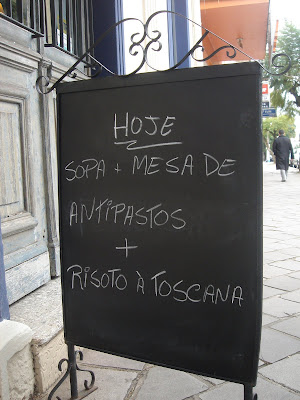 HOJE
SOPA + MESA DE
ANTIPASTOS
+
RISOTO À TOSCANA